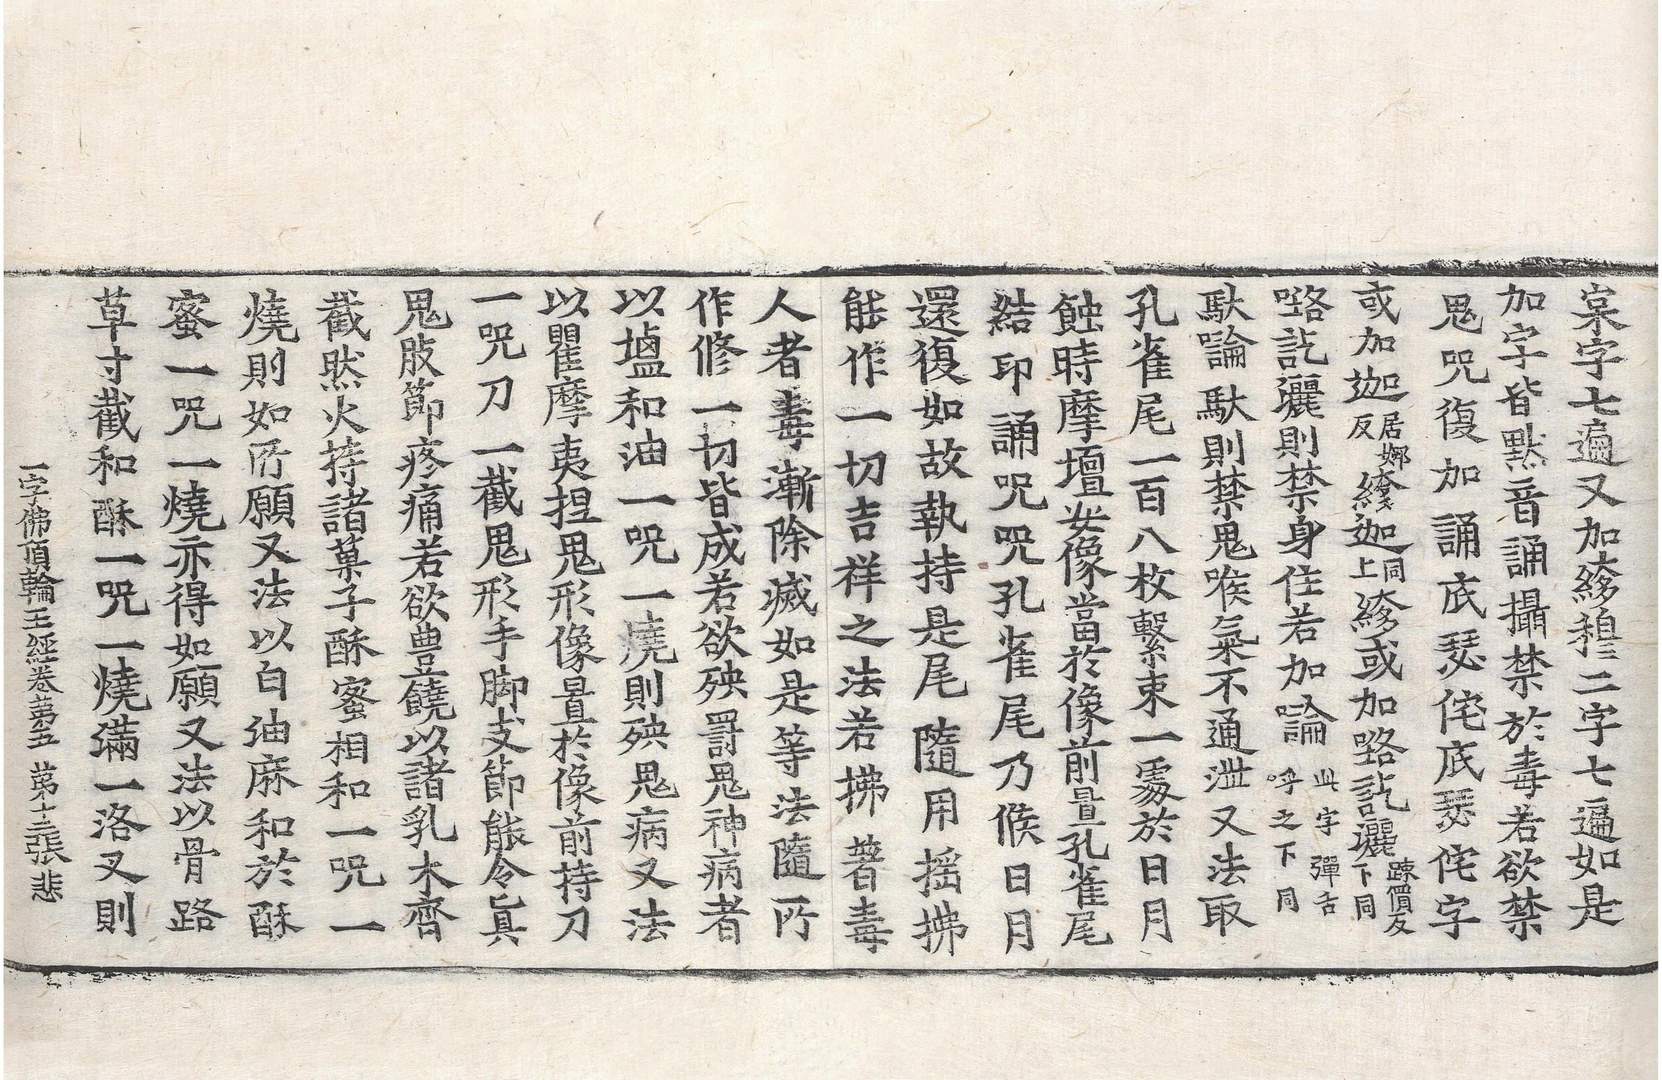 枲字七遍又加縿穆二字七遍如是
加字皆默音誦攝禁於毒若欲禁
鬼呪復加誦底瑟侘底瑟侘字
或加迦居娜反縿迦同上縿或加㗚訖灑疎價反下同
㗚訖灑則禁身住若加㘕此字彈舌呼之下同
馱㘕馱則禁鬼喉氣不通泄又法取
孔雀尾一百八枚繫束一處於日月
蝕時摩壇安像當於像前置孔雀尾
結印誦呪呪孔雀尾乃候日月
還復如故執持是尾隨用揺拂
能作一切吉祥之法若拂著毒
人者毒漸除滅如是等法隨所
作修一切皆成若欲殃罰鬼神病者
以塩和油一呪一燒則殃鬼病又法
以瞿摩夷捏鬼形像置於像前持刀
一呪刀一截鬼形手脚支節能令真
鬼肢節疼痛若欲豊饒以諸乳木齊
截然火持諸菓子酥蜜相和一呪一
燒則如所願又法以白油麻和於酥
蜜一呪一燒亦得如願又法以骨路
草寸截和酥一呪一燒滿一洛叉則
一字佛頂輪王經卷苐五 苐十三張 悲